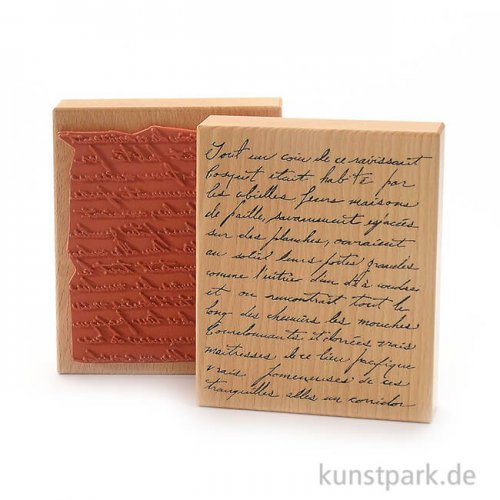 Tout un coin de ce ravissait
bosquet était habité par
les abeilles leurs maisons
de paille, savamment espacées
sur des planches, ouvraient
au soleil leurs portes grandes
comme l'entrée d'un dé à coudre
et on rencontrait tout le
long des chemins les mouches
bourdonnants et dorées vrais
maîtresses de ce lieu pacifique
vrais promeneuses de ces
tranquilles allés en corridor
kunstpark.de